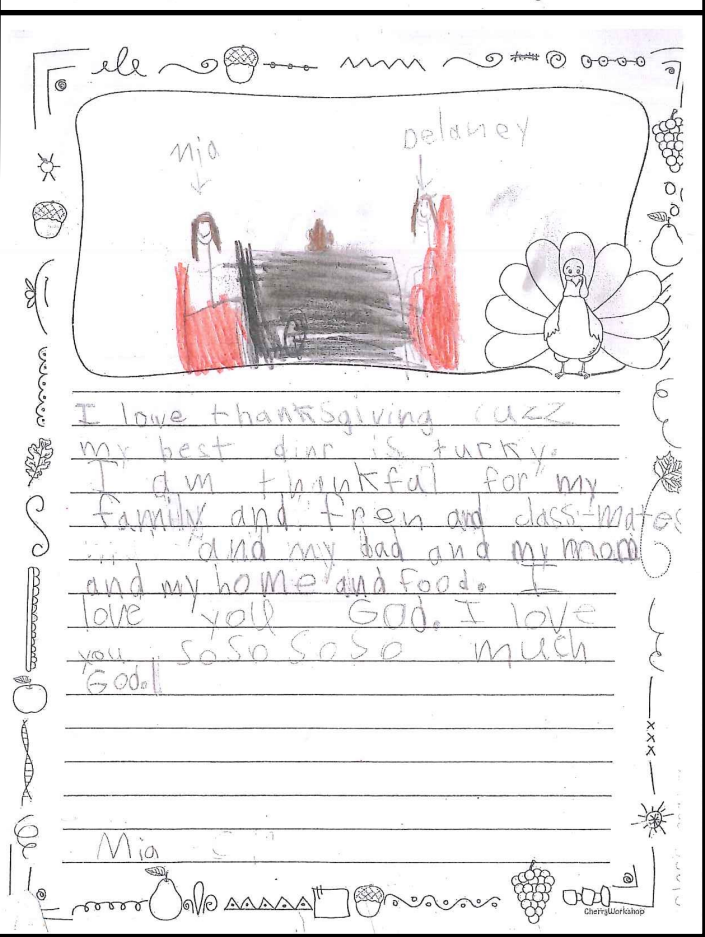 Mia
Delaney
I love thanksgiving cuzz
my best dinr is turky.
I am thankful for my
family and fren and class-mates
and my dad and my mom
and my home and food. I
love you God. I love
you so so so so much
God.
Mia
CherryWorkshop